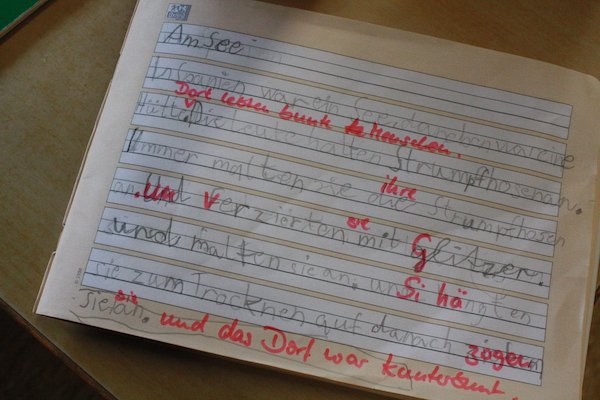 Am See
In Spanien war ein See daneben war eine
Dort lebten bunte Menschen.
Hütte. Die leute hatten Strumpfhosen an.
Immer malten sie die ihre Strumpfhosen
an. Und verzierten sie mit Glitzer.
und malten sie an. Si hängten
sie zum Trocknen auf danach zogen
sie sie an. und das Dorf war kunterbunt.